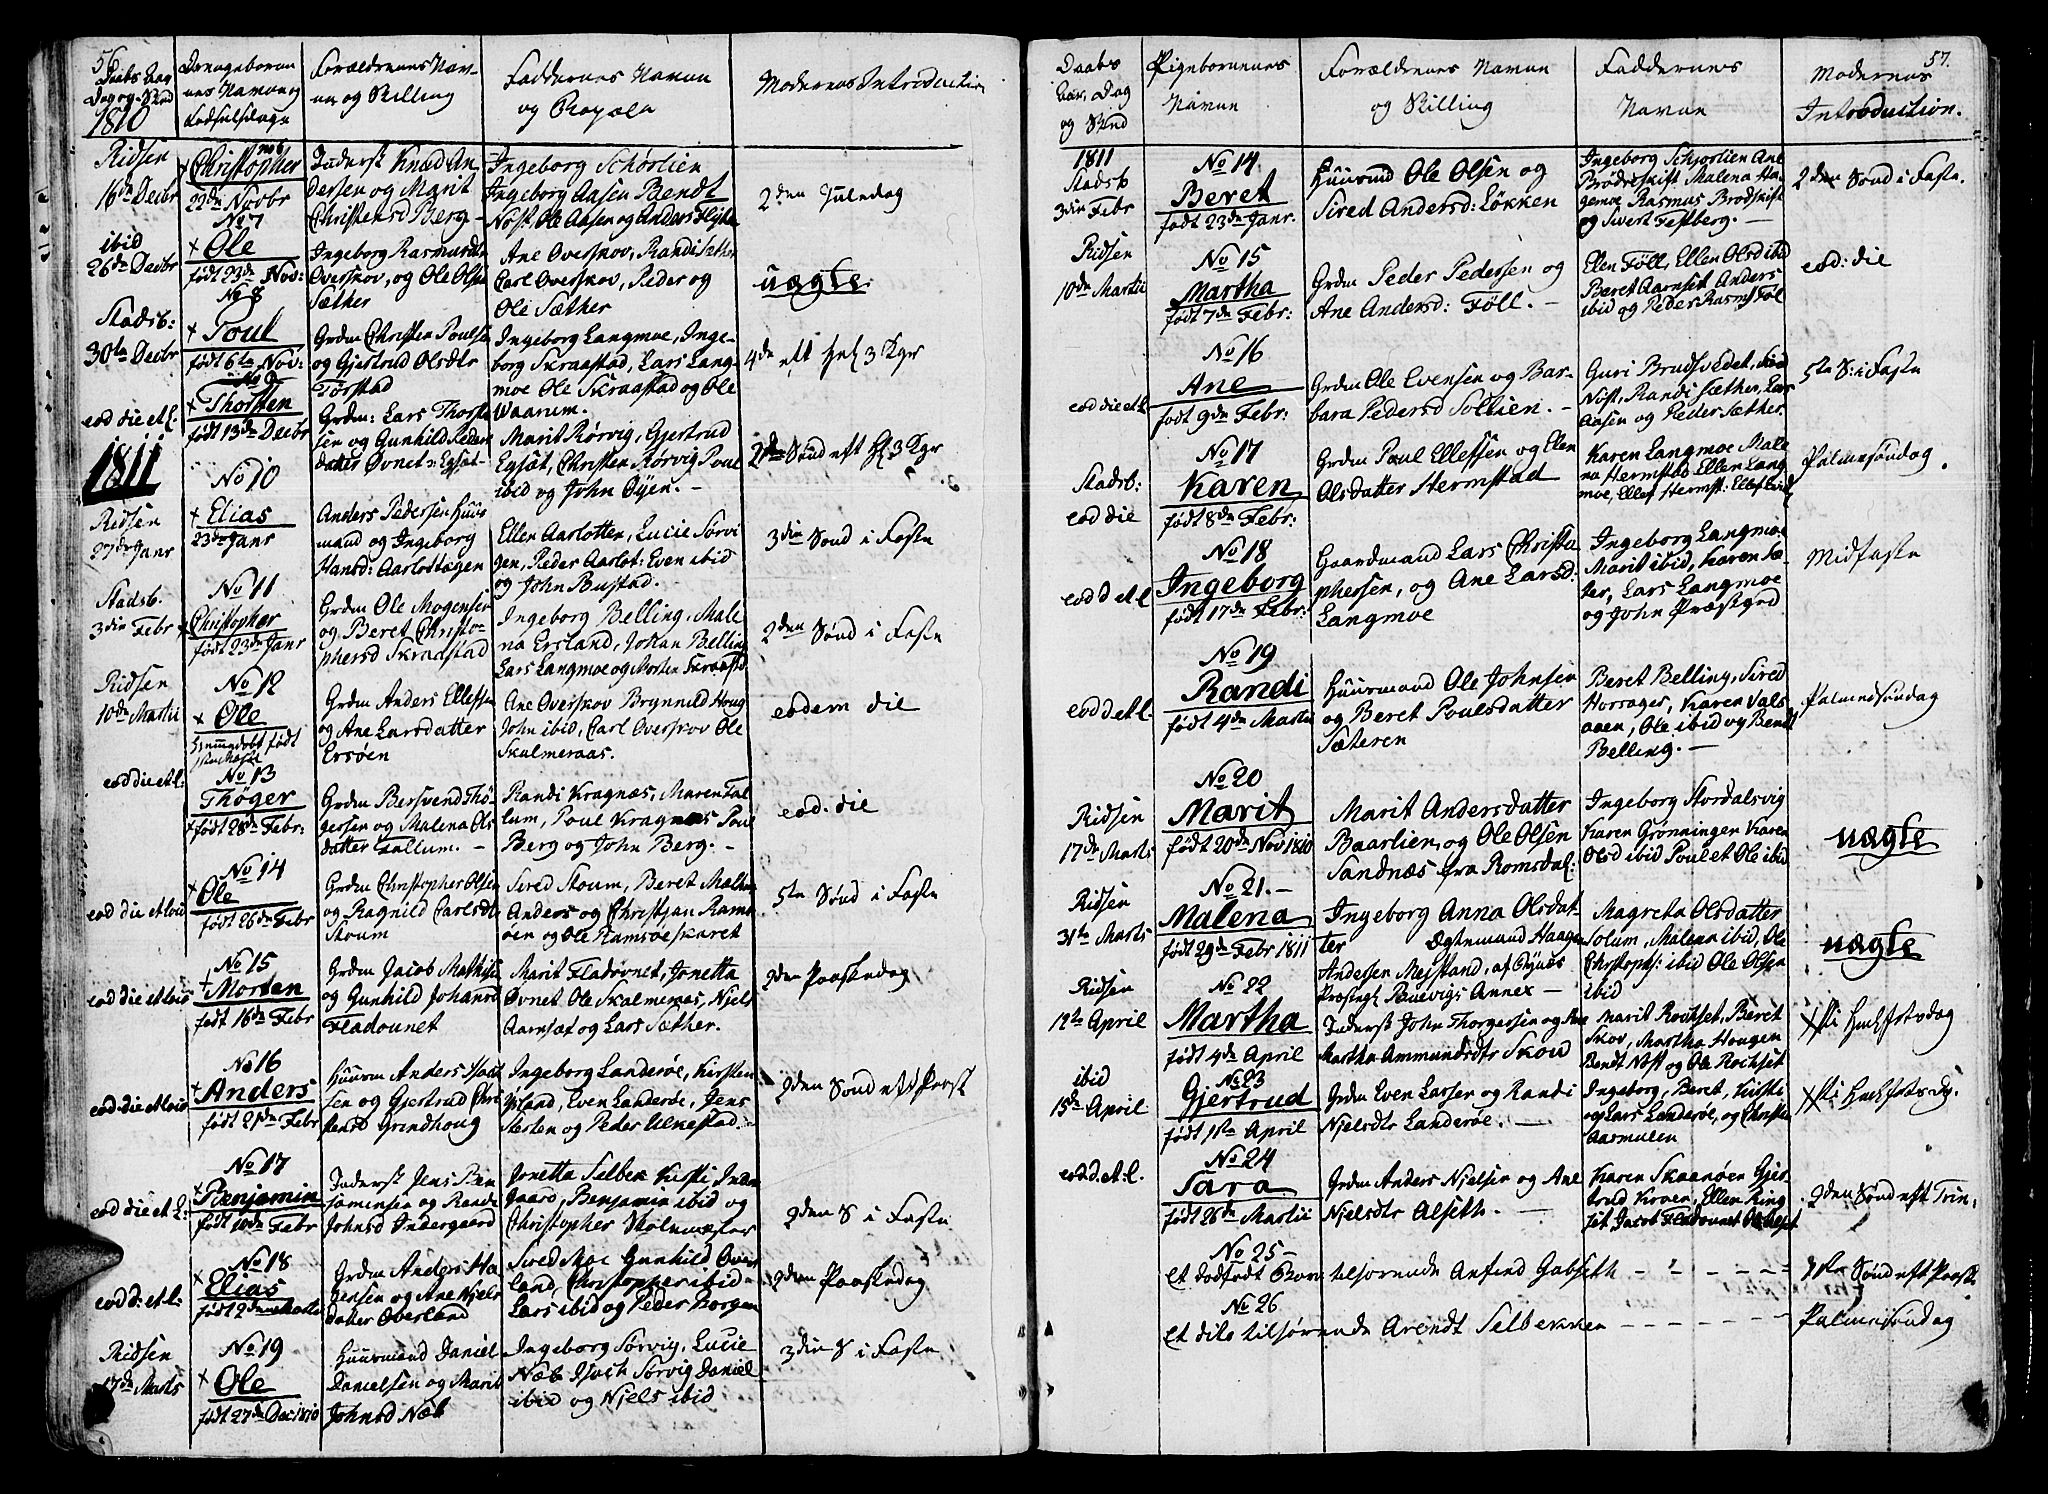 56
Daabs Aar
Dag og Sted
1810
Drengebørne
nes Navne og
Fødselsdage
Forældrenes Nav-
ne og Stilling
Faddernes Navne
og
Moderens Introduction
Ridsen
16de Decbr
Christopher
22de Novbr
Inderst Knud An
dersen og Marit
Christensd Berg
Ingeborg Schørlien
Ingeborg Aasen Bendt
Nøst. Ole Aasen og Anders
2den Juledag
ibid
26de Decbr
No 7
Ole
født 23de Nov:
Ingeborg Rasmusdr
Overskov, og Ole Olsen
Sæther
Ane Overskov, Randi Sæther
Carl Overskov, Peder og
Ole Sæther
uægte
Stadsb:
30te Decbr
No 8
Poul
født 6te Nov:
Grdm Christen Poulsen
og Gjertrud Olsdtr
Tørstad
Ingeborg Langmoe, Inge-
borg Skraastad, Lars Lang-
moe Ole Skraastad og Ole
Waarum.
4de eft hel 3 Kgr
eod die et l.
No 9
Thorsten
født 13de Decbr
Grdm: Lars Thorste
sen og Gunhild Peders
datter Øvnet: Egsæt
Marit Rørvig, Gjertrud
Egsæt, Christen Rørvig Poul
ibid og John Øyen.
2den Sønd eft Hl 3 Kgr
1811
Ridsen
27de Janr
No 10
Elias
23de Janr
Anders Pedersen Huus
mand og Ingeborg
Hansd: Aarlottagen
Ellen Aarlotten, Lucie Sørvi
gen, Peder Aarlot: Even ibid
og John Bustad.
3die Sønd i Faste
Stadsb.
3die Febr
No 11
Christopher
født 23de Janr
Grdm Ole Mogensen
og Beret Christo-
phersd Skraastad
Ingeborg Belling, Male
na Ersland, Johan Belling
Lars Langmoe og Morten Skraastad
2den Sønd i Faste
Ridsen
10de Martii
No 12
Ole
hjemmedøbt født
Grdm Anders Ellefsen
og Ane Larsdatter
Ersøen
Ane Overskov Brynnild Houg
John ibid, Carl Overskov Ole
Skalmeraas.
eodem die
eod die et l:
No 13
Thøger
født 28de Febr:
Grdm Bersvend Thø-
gersen og Malena Ols
datter Fallum.
Randi Kragnæs, Maren Fal
lum, Poul Kragnæs Poul
Berg og John Berg.
eod. die
eod die et loco
No 14
Ole
født 26de Febr
Grdm Christopher Olsen
og Ragnild Carlsdtr
Stoum
Sired Stoum, Beret
Anders og Christian Rams
øen og Ole Ramsøeskaret
5te Sønd i Faste
eod die et loco
No 15
Morten
født 16de Febr
Grdm Jacob Mathisen
og Gunhild Johansd
Fladounet
Marit Fladøvnet, Jonetta
Øvnet Ole Skalmenæs, Njels
Aarnsæt og Lars Sæther.
2den Paaskedag
eod die et loco
No 16
Anders
født 21de Febr
Huusm Anders
sen og Gjertrud Chri
stensd Grindhoug
Ingeborg Landerøe, Kirsten
Ysland, Even Landerøe, Jens
Sterten og Peder Ulkestad.
2den Sønd eft Paask
eod die et l:
No 17
Benjamin
født 10de Febr
Inderst Jens Ben
jaminsen og Randi
Johnsd Indergaard
Jonetta Selbek Kirsti Inder
gaard, Benjamin ibid og
Christopher Skolemester
2den S i Faste
eod d: et l:
No 18
Elias
født 2den Martii
Grdm Anders Ha
gensen og Ane Njels
datter Overland
Sired Moe Gunhild Over
land, Christopher ibid
Lars ibid og Peder Borgen
2den Paaskedag
Ridsen
17de Marts
No 19
Ole
født 27de Dec 1810
Huusmand Daniel
Danielsen og Marit
Johnsd Næb
Ingeborg Sørvig, Lucie
Næb Isach Sørvig Daniel
ibid og Njels ibid
3die S i Faste
57.
Daabs
Aar, Dag
og Sted
Pigebørnenes
Navne
Forældrenes Navne
og Stilling
Faddernes
Navne
Moderens
Introduction.
1811
Stadsb
3die Febr
No 14.
Beret
født 23de Janr.
Huusmd Ole Olsen og
Sired Andersd: Løkken
Ingeborg Schjørlien Ane
Brødreskift Malena Ha
gemoe Rasmus Brødskift
og Sivert Festberg.
2den Sønd i Faste.
Ridsen
10de Martii
No 15
Martha
født 7de Febr:
Grdm Peder Pedersen og
Ane Andersd: Føll.
Elen Føll, Ellen Olsd ibid
Beret Aarnsæt Anders
ibid og Peder Rasms Føl
eod: die
eod die et l.
No 16
Ane
født 9de Febr:
Grdm Ole Evensen og Bar-
bara Pedersd Soltien.
Guri Brudsvedet, Sired
Nøst, Randi Sæther, Lars
Aasen og Peder Sæther.
5te S: i Faste
Stadsb:
eod die
No 17
Karen
født 8de Febr:
Grdm Poul Ellefsen og Elen
Olsdatter Hermstad
Karen Langmoe Male
na Hermstad Ellen Lang
moe, Ellef Hermst: Ellef ibid
Palmesøndag.
eod d et l
No 18
Ingeborg
født 17de Febr:
Gaardmand Lars Christo
phersen, og Ane Larsd:
Langmoe
Ingeborg Langmoe
Marit ibid, Karen Sæ
ter, Lars Langmoe
og John Præstgrd
Midfaste
eod d et l.
No 19
Randi
født 4de Martii
Huusmand Ole Johnsen
og Beret Poulsdatter
Sæteren
Beret Belling, Sired
Horrages, Karen Vals
aaen, Ole ibid og Bendt
Belling.
Palmesøndag
Ridsen
17de Marts
No 20
Marit
født 20de Nov 1810
Marit Andersdatter
Baarlien, og Ole Olsen
Sandnæs fra Romsdal:
Ingeborg Stordalsvig
Karen Grønningen Karen
Olsd ibid Poul et Ole ibid
uægte
Ridsen
31te Marts
No 21.
Malena
født 29de Febr 1811
Ingeborg Anna Olsdat-
ter Ægtemand Haagen
Andersen Mejstand, af Bynæs
Præstegl Buevigs Annex
Magreta Olsdatter
Solum, Malena ibid, Ole
Christoph: ibid Ole Olsen
ibid
uægte
Ridsen
12te April
No 22
Martha
født 4de April
Inderst John Thorgersen og Ane
Martha Ammundsdtr Skou
Marit Rochset, Beret
Skov, Martha Hougen
Bendt Nøst og Ole Rochset
ibid
15de April
No 23
Gjertrud
født 1ste April
Grdm Even Larsen og Randi
Njelsdtr Landerøe.
Ingeborg, Beret, Kirsti
og Lars Landerøe, og Christen
Aasmulen
eod d. et l.
No 24
Sara
født 26de Martii
Grdm Anders Njelsen og Ane
Njelsdtr Alseth.
Karen Skaanøen Gjer
trud Kroen, Ellen Ring
set Jacob Fladounet Ole Alset
2den Sønd eft Trin:
No 25
et dødfødt Barn tilhørende Anfind Gabseth
1ste Sønd eft Paaske
No 26
et dito tilhørende Arendt Selbekken
Palmesøndag